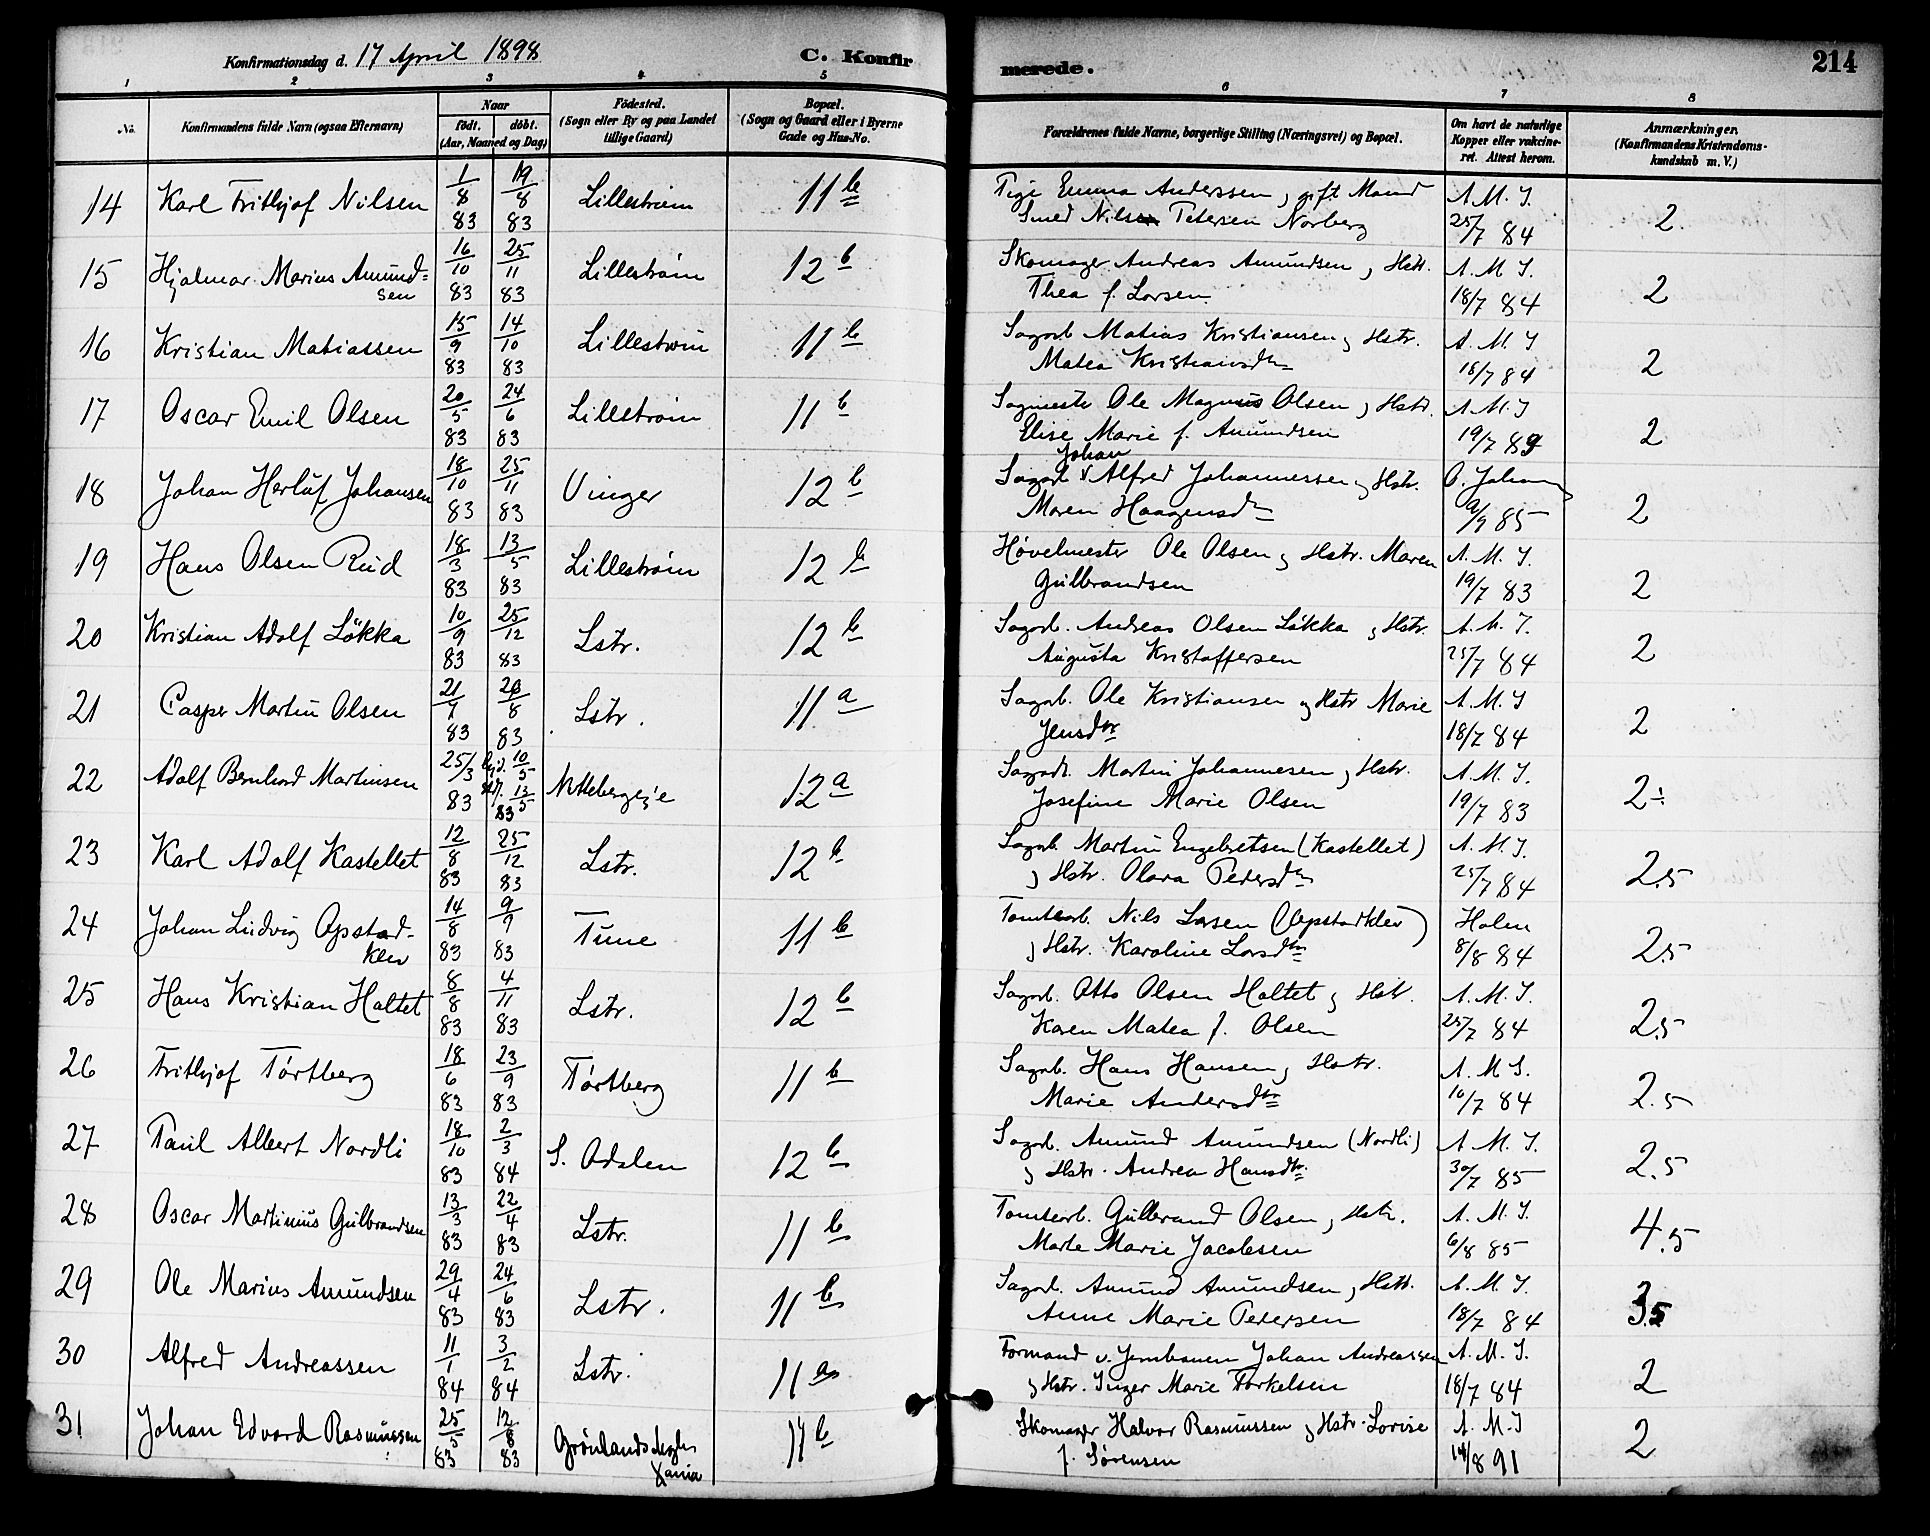 Konfirmationsdag d. 17 April 1898
C. Konfirmerede.
214
1 2 3 4 5 6 7 8
No.
Konfirmandens fulde Navn (ogsaa Efternavn)
Naar
födt. döbt.
(Aar, Maaned og Dag)
Födested.
(Sogn eller By og paa Landet
tillige Gaard)
Bopæl.
(Sogn og Gaard eller i Byerne
Gade og Hus-No.
Forældrenes fulde Navne, borgerlige Stilling (Næringsvei) og Bopæl.
Om havt de naturlige
Kopper eller vakcine-
ret. Attest herom.
Anmærkninger.
(Konfirmandens Kristendoms-
kundskab m. V.)
14 Karl Frithjof Nilsen 1/8 83 19/8 83 Lillestrøm 11 b Pige Emma Anderssen, gift Mand A. M. I.
Smed Nils Petersen Norberg 25/7 84 2.
15 Hjalmar Marius Amund- 16/10 83 25/11 83 Lillestrøm 12 b Skomager Andreas Amundsen, Hstr. A. M. I.
sen Thea f. Larsen 18/7 84 2
16 Kristian Matiassen 15/9 83 14/10 83 Lillestrøm 11 b Sagarb. Matias Kristiansen, Hstr. A. M. I
Matea Kristiansdtr 18/7 84 2
17 Oscar Emil Olsen 20/5 83 24/6 83 Lillestrøm 11 b Sagmester Ole Magnus Olsen, Hstr. A. M. I
Elise Marie f. Amundsen 19/7 84 2
18 Johan Herluf Johansen 18/10 83 25/11 83 Vinger 12 b Sagarb. Johan Alfred Johannessen, Hstr. O. Johan
Maren Haagensdtr 9/9 85 2
19 Hans Olsen Rud 18/3 83 13/5 83 Lillestrøm 12 b Høvelmester Ole Olsen, Hstr. Maren A. M. I.
Gulbrandsen 19/7 83 2
20 Kristian Adolf Løkka 10/9 83 25/12 83 Lstr. 12 b Sagarb. Andreas Olsen Løkka, Hstr. A. M. I.
Augusta Kristoffersen 25/7 84 2
21 Casper Martin Olsen 21/7 83 26/8 83 Lstr. 11 a Sagarb. Ole Kristiansen, Hstr Marie A. M. I
Jensdtr 18/7 84 2
22 Adolf Bernhard Martinsen 25/3 83 hjd. 10/5 13/5 83 Nittebergeje 12 a Sagarb. Martin Johannesen, Hstr. A. M. I.
Josefine Marie Olsen 19/7 83 2÷
23 Karl Adolf Kastellet 12/8 83 25/12 83 Lstr. 12 b Sagarb. Martin Engebretsen (Kastellet) A. M. I.
, Hstr. Olava Pedersdtr 25/7 84 2.5
24 Johan Ludvig Opstad- 14/8 83 9/9 83 Tune 11 b Tomtearb. Nils Larsen (Opstadklev) Holm
klev , Hstr. Karoline Larsdtr 8/8 84 2.5
25 Hans Kristian Holtet 8/8 83 4/11 83 Lstr. 12 b Sagarb. Otto Olsen Holtet, Hstr. A. M. I.
Karen Matea f. Olsen 25/7 84 2.5
26 Frithjof Tørtberg 18/6 83 23/9 83 Tørtberg 11 b Sagarb. Hans Hansen, Hstr. A. M I.
Marie Andersdtr 16/7 84 2.5
27 Paul Albert Nordli 18/10 83 2/3 84 S. Odalen 12 b Sagarb. Amund Amundsen (Nordli) A. M. I.
, Hstr. Andrea Hansdtr. 30/7 85 2.5
28 Oscar Martinius Gulbrandsen 13/3 83 22/4 83 Lstr. 11 b Tomtearb. Gulbrand Olsen, Hstr. A. M. I.
Marte Marie Jacobsen 6/8 85 4.5
29 Ole Marius Amundsen 29/4 83 24/6 83 Lstr. 11 b Sagarb. Amund Amundsen, Hstr. A. M. I.
Anne Marie Petersen 18/7 84 3.5
30 Alfred Andreassen 11/1 84 3/2 84 Lstr. 11 a Formand v. Jernbanen Johan Andreassen A. M. I.
, Hstr. Inger Marie Torkelsen 18/7 84 2
31 Johan Edvard Rasmussen 25/5 83 12/8 83 Grønlands Xania 11 b Skomager Halvor Rasmussen, Hstr. Lovise A. M. I
f. Sørensen 14/8 91 2